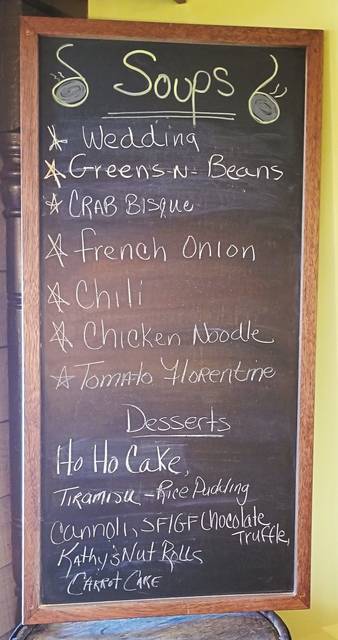 Soups
Wedding
Greens-N-Beans
CRAB BISque
French Onion
Chili
Chicken Noodle
Tomato Florentine
Desserts
Ho Ho Cake,
TIRAMISU - Rice Pudding
Cannoli, SF/GF Chocolate
Truffle,
Kathy's Nut Rolls
CARROT CAKE